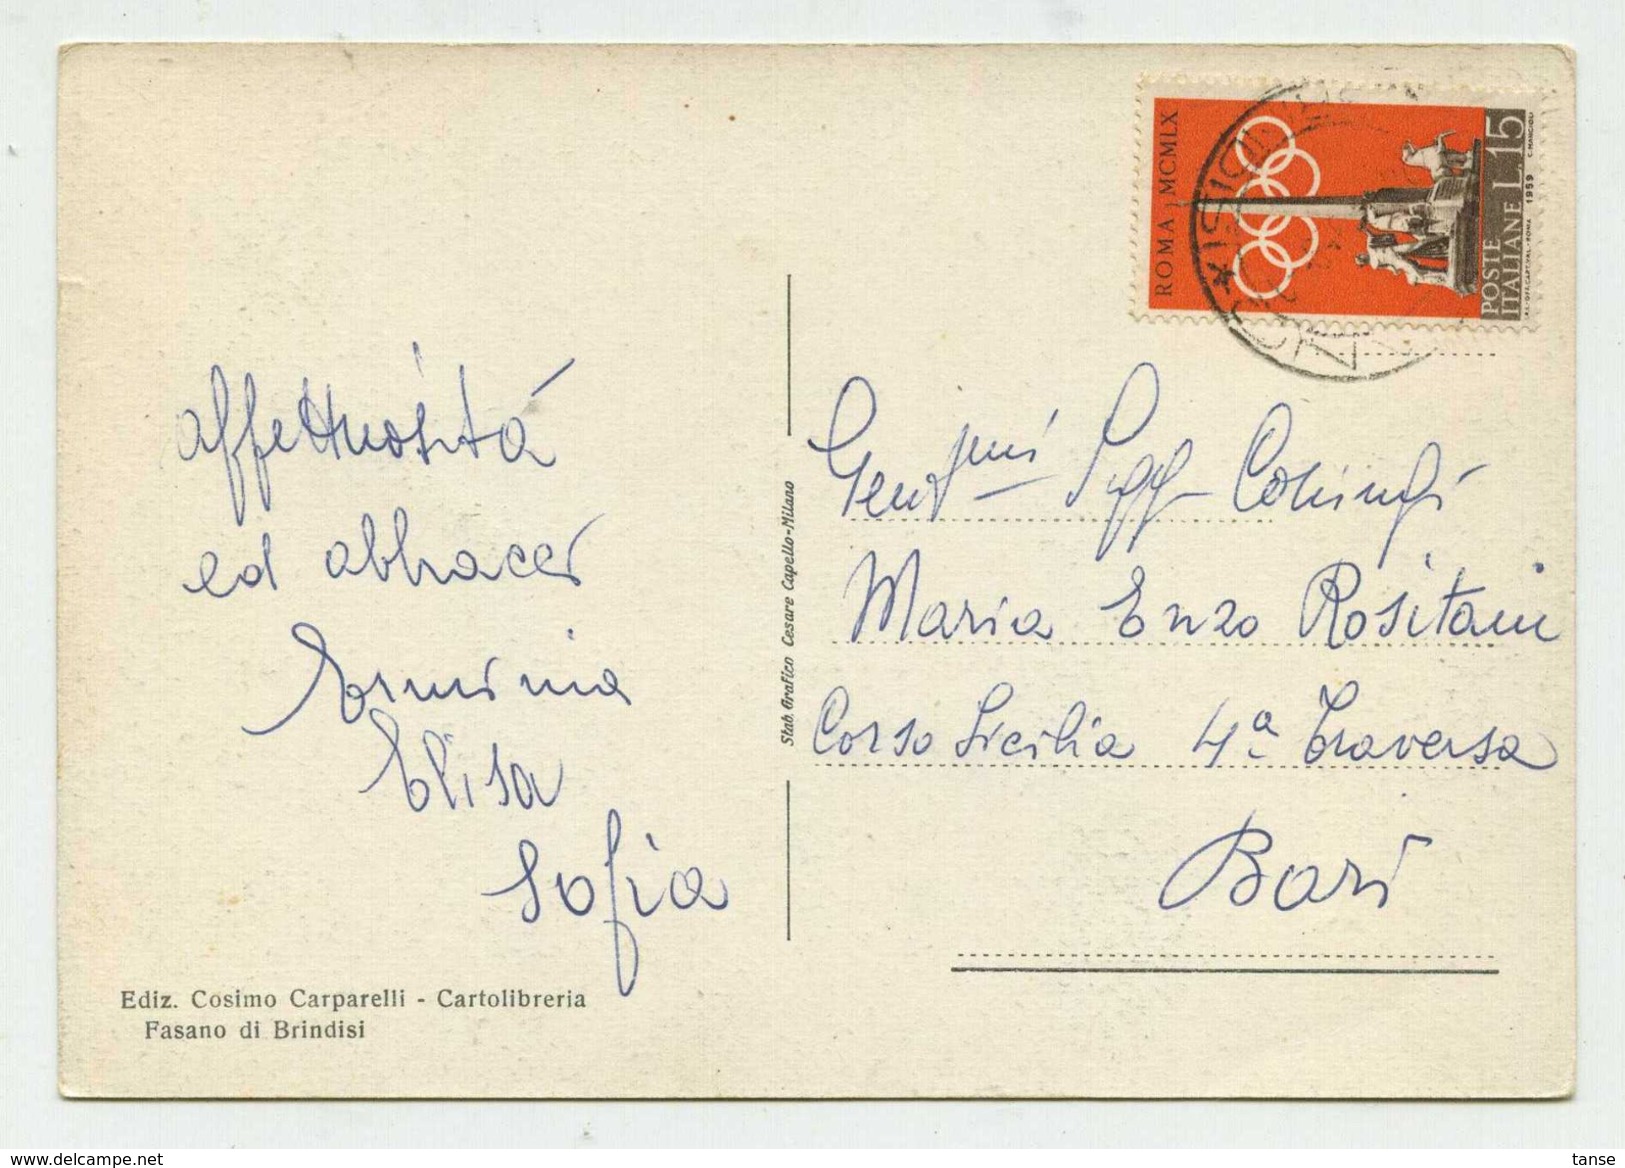 affettuosità
ed abbracci
Erminia
Elisa
Sofia
Ediz. Cosimo Carparelli - Cartolibreria
Fasano di Brindisi
Stab. Grafico Cesare Capello-Milano
ROMA MCMLX
POSTE
ITALIANE L. 15
1959
C. MANCIOLI
Gent.mi Sigg.
Maria Enzo Rositani
Corso Sicilia 4ª Traversa
Bari
www.delcampe.net
tanse